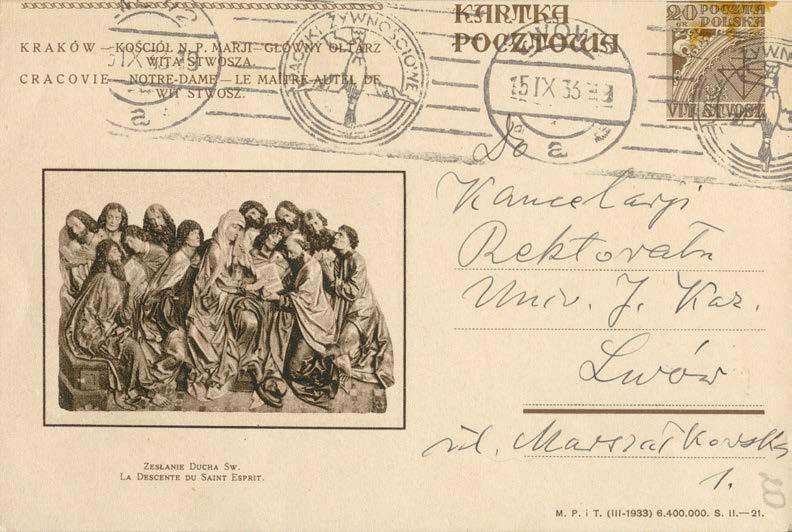 KARTKA
POCZTOWA
20 GR. POCZTA
POLSKA
WIT STWOSZ
KRAKÓW—KOŚCIÓŁ N. P. MARJI—GŁÓWNY OŁTARZ
WITA STWOSZA.
CRACOVIE—NOTRE-DAME—LE MAÎTRE-AUTEL DE
WIT STWOSZ.
ŻYWNOŚCIOWE
15 IX 36
a
a
Do
Kancelarji
Rektoratu
Univ. J. Kaz.
Lwów
ul. Marszałkowska
1.
ZESŁANIE DUCHA ŚW.
LA DESCENTE DU SAINT ESPRIT.
M. P. i T. (III-1933) 6.400.000. S. II.—21.